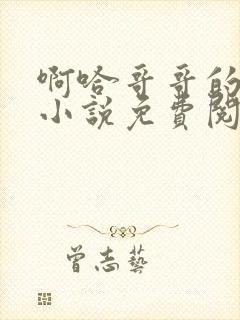 啊哈哥哥的
小說免費閱
曾志藝